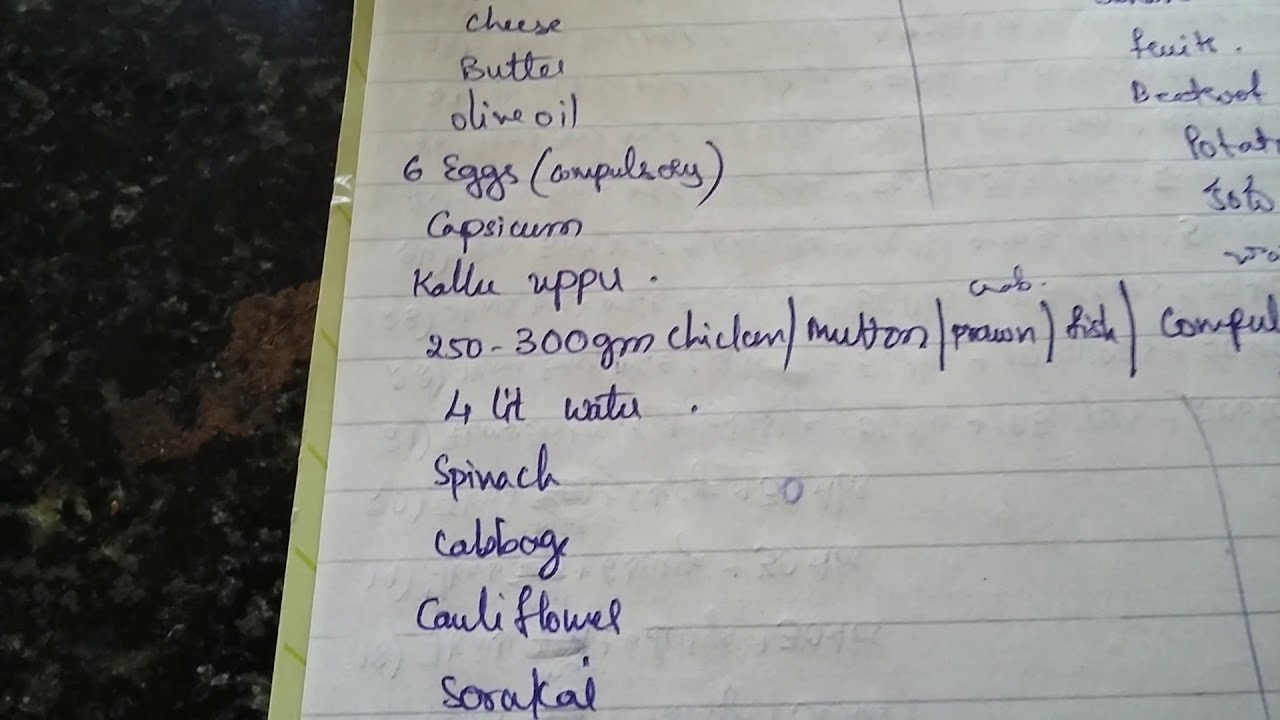 Cheese
Butter
Olive oil
6 Eggs (Compulsory)
Capsicum
Kallu uppu .
crab.
250-300gm Chicken/Mutton/prawn/fish/ Compul
4 lit water .
Spinach
Cabbage
Cauliflower
Sorakai
fruits .
Beetroot
Potat